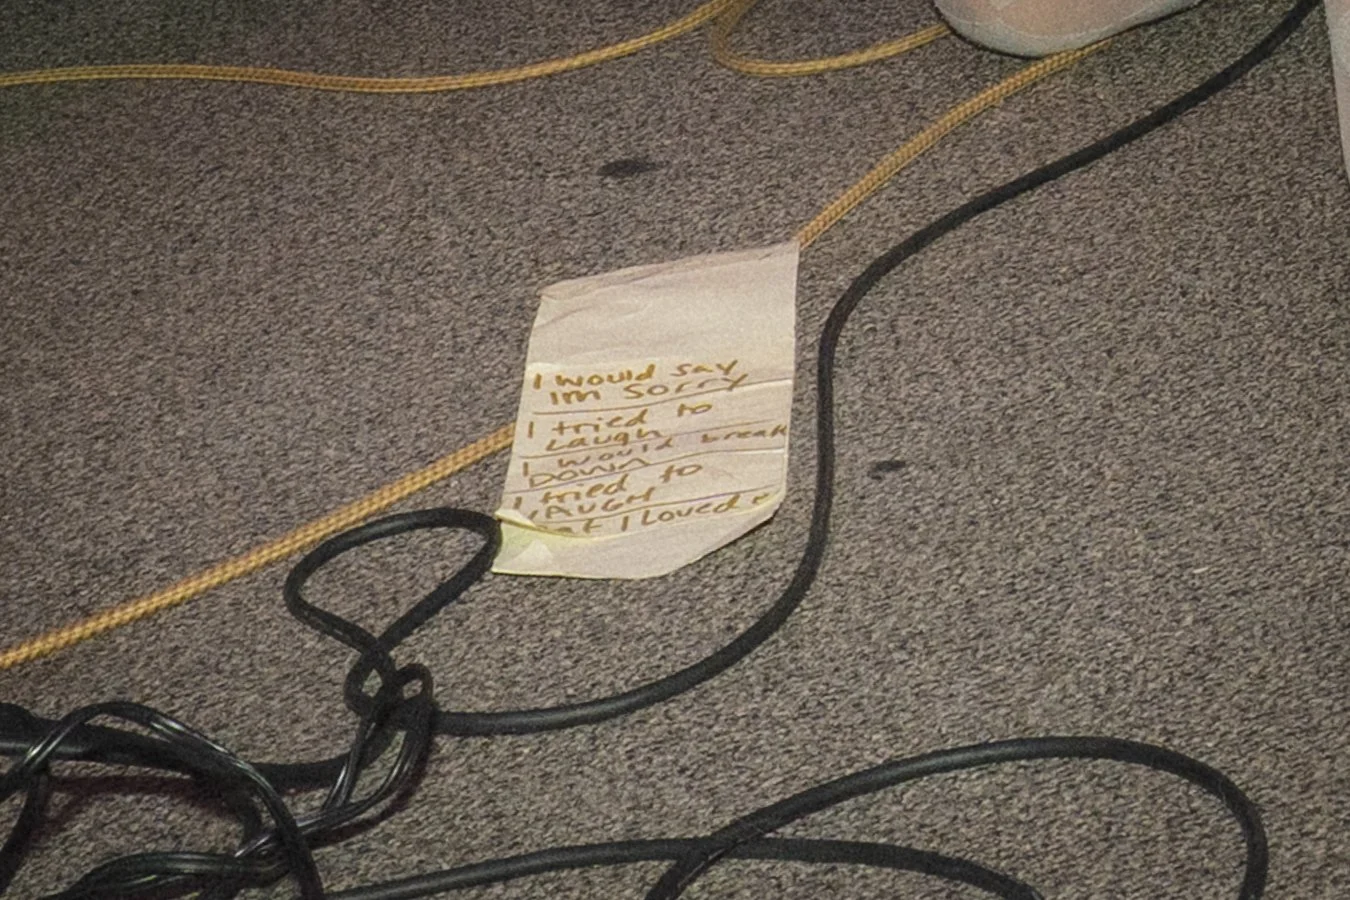 I would say
Im sorry
I tried to
Laugh
I would break
Down
I tried to
LAUGH
I Loved